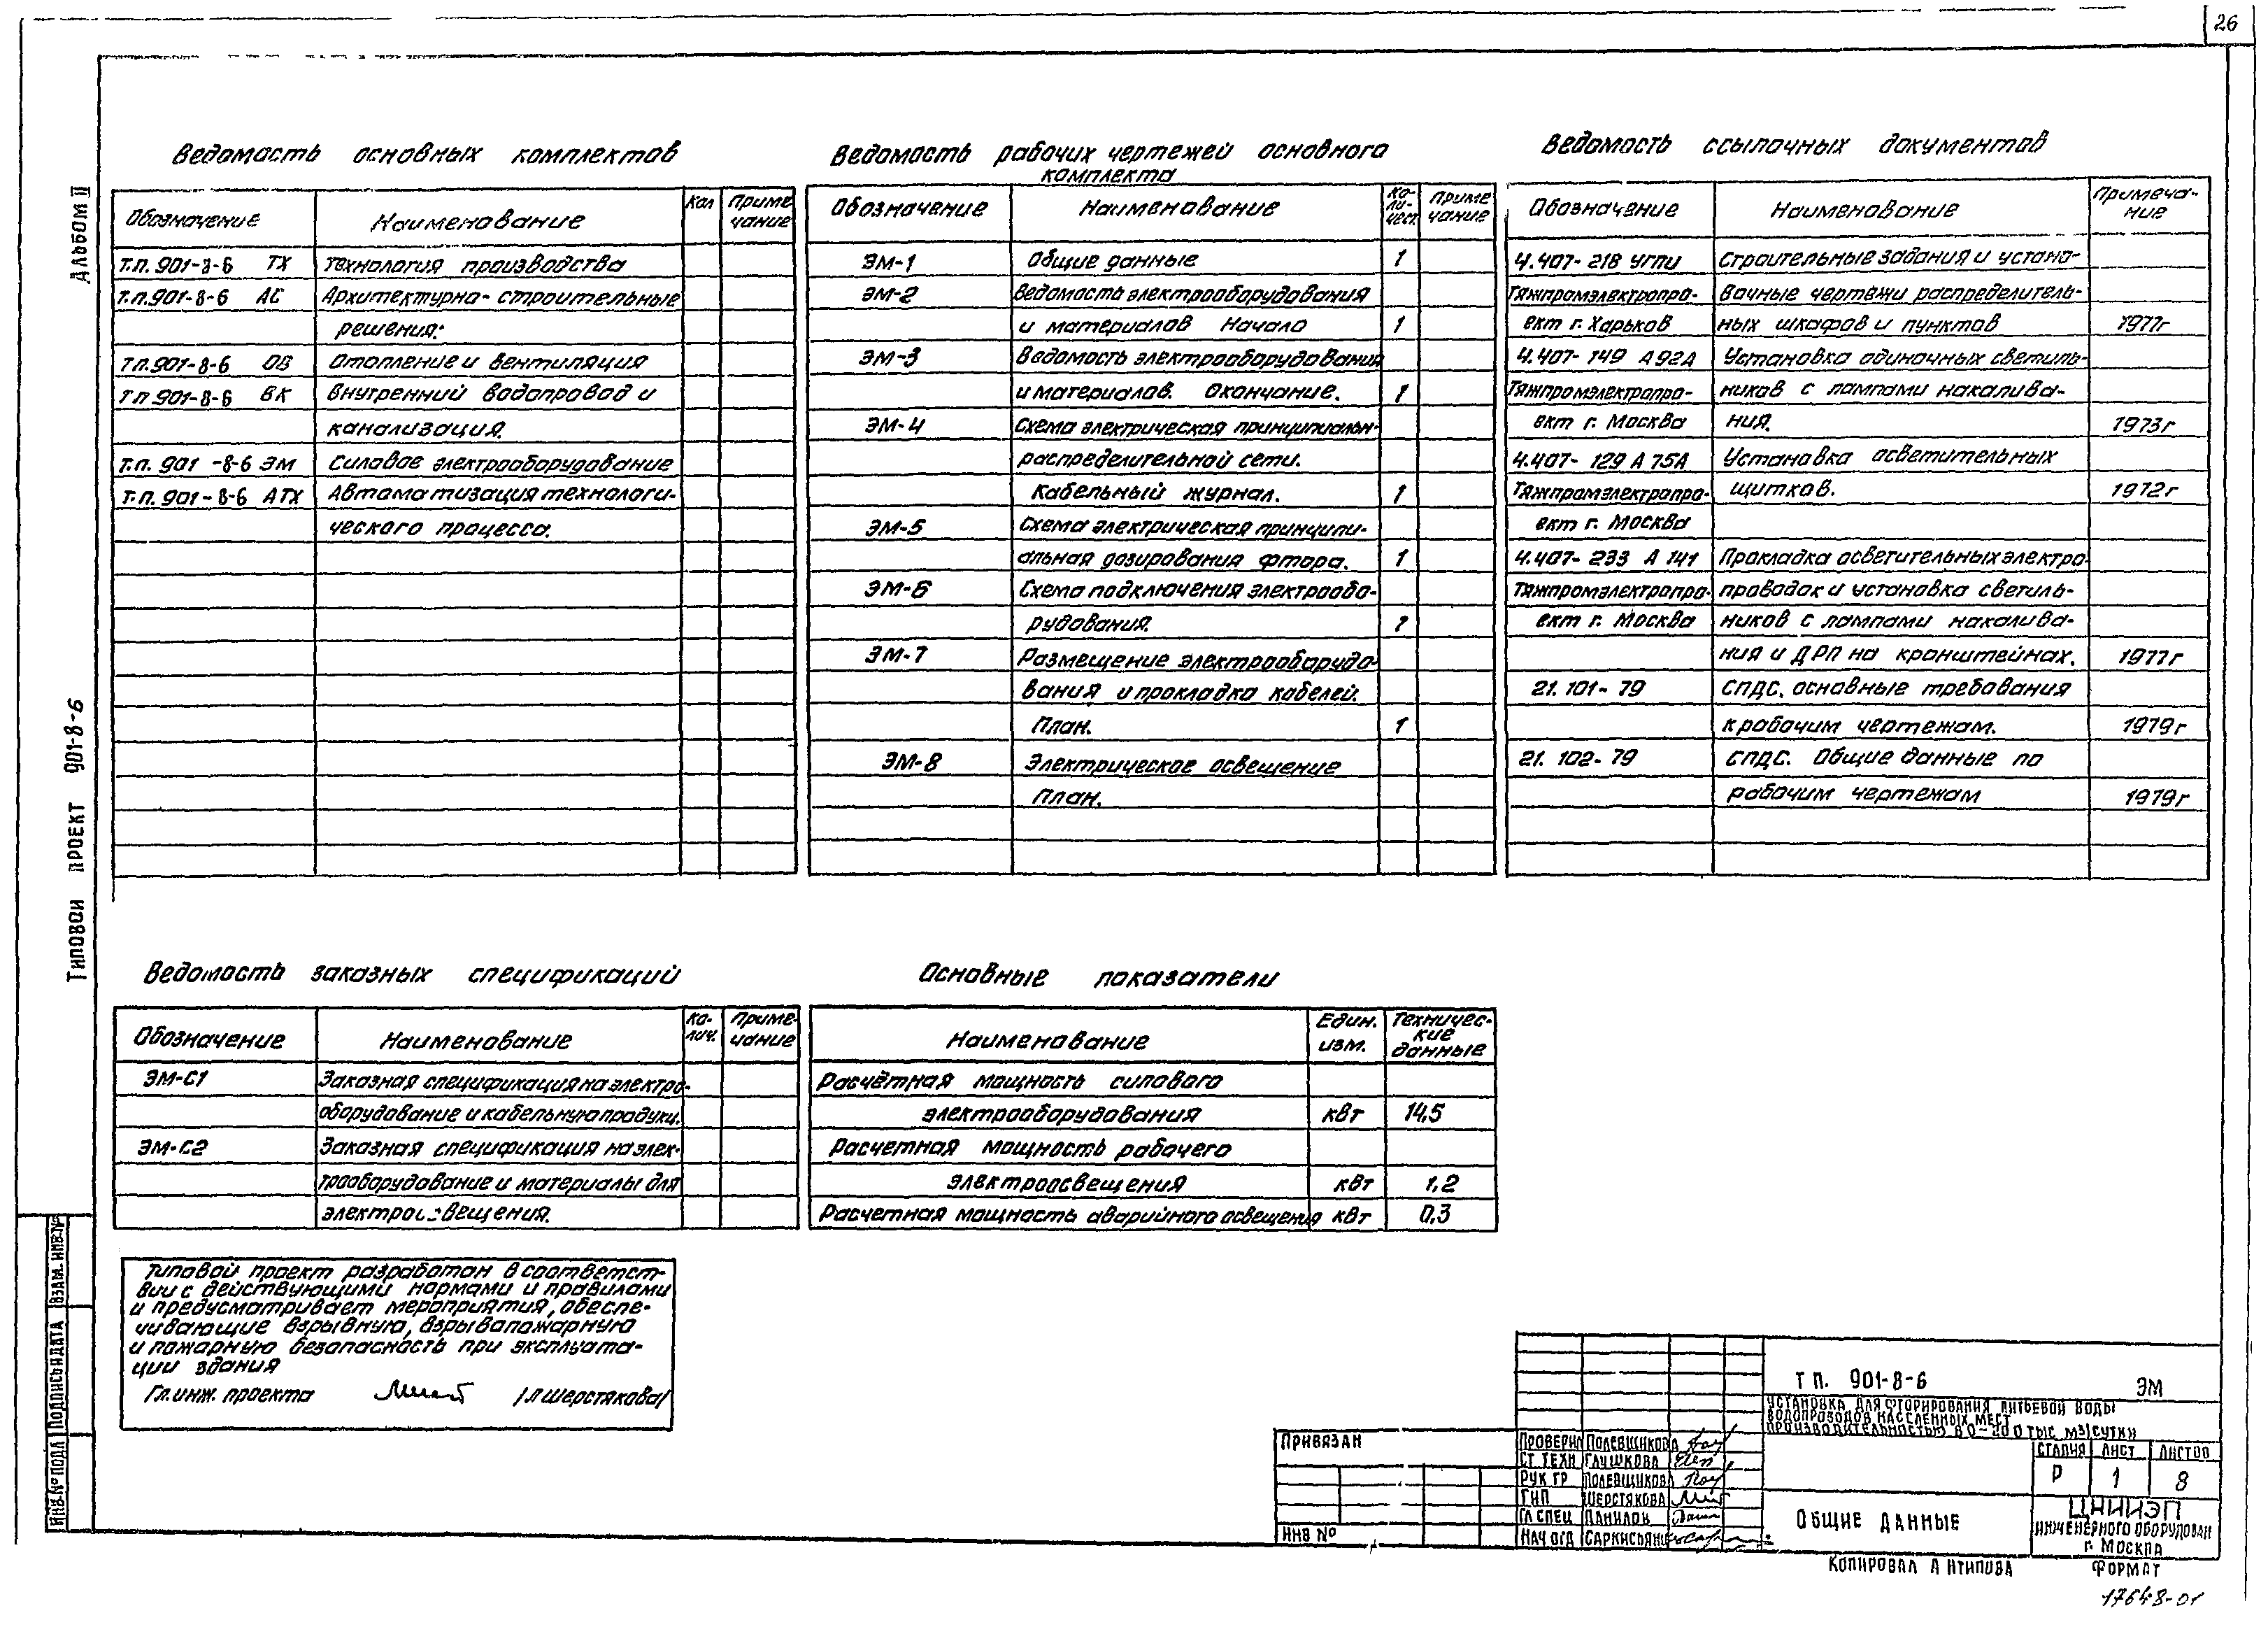 26
Альбом II
Типовой проект 901-8-6
Ведомость основных комплектов
Обозначение Наименование Кол Приме
чание
Т.п. 901-8-6 ТХ Технология производства
Т.п.901-8-6 АС Архитектурно-строительные
решения.
Т.п.901-8-6 ОВ Отопление и вентиляция
Т.п 901-8-6 ВК Внутренний водопровод и
канализация.
Т.п. 901-8-6 ЭМ Силовое электрооборудование
Т.п. 901-8-6 АТХ Автоматизация технологи-
ческого процесса.
Ведомость рабочих чертежей основного
комплекта
Обозначение Наименование Ко-
ли-
чест Приме
чание
ЭМ-1 Общие данные 1
ЭМ-2 Ведомость электрооборудования
и материалов Начало 1
ЭМ-3 Ведомость электрооборудования
и материалов. Окончание. 1
ЭМ-4 Схема электрическая принципиальн-
распределительной сети.
Кабельный журнал. 1
ЭМ-5 Схема электрическая принципи-
альная дозирования фтора. 1
ЭМ-6 Схема подключения электрообо-
рудования. 1
ЭМ-7 Размещение электрооборудо-
вания и прокладка кабелей.
План. 1
ЭМ-8 Электрическое освещение
План.
Ведомость ссылочных документов
Обозначение Наименование Примеча-
ние
4.407-218 УГПИ Строительные задания и устано-
Тяжпромэлектропро- вочные чертежи распределитель-
ект г. Харьков ных шкафов и пунктов 1977г
4.407-149 А92А Установка одиночных светиль-
Тяжпромэлектропро- ников с лампами накалива-
ект г. Москва ния. 1973г
4.407-129 А75А Установка осветительных
Тяжпромэлектропро- щитков. 1972г
ект г. Москва
4.407-233 А 141 Прокладка осветительных электро
Тяжпромэлектропро- проводок и установка светиль-
ект г. Москва ников с лампами накалива-
ния и ДРЛ на кронштейнах. 1977г
21.101-79 СПДС. основные требования
к рабочим чертежам. 1979г
21.102-79 СПДС. Общие данные по
рабочим чертежам 1979г
Ведомость заказных спецификаций
Обозначение Наименование Ко-
лич. Приме-
чание
ЭМ-С1 Заказная спецификация на электро-
оборудование и кабельную продукц.
ЭМ-С2 Заказная спецификация на элек-
трооборудование и материалы для
электроосвещения.
Основные показатели
Наименование Един.
изм. Техничес-
кие
данные
Расчётная мощность силового
электрооборудования кВт 14,5
Расчетная мощность рабочего
электроосвещения кВт 1,2
Расчетная мощность аварийного освещения кВт 0,3
Типовой проект разработан в соответст-
вии с действующими нормами и правилами
и предусматривает мероприятия, обеспе-
чивающие взрывную, взрывопожарную
и пожарную безопасность при эксплуата-
ции здания
Гл. инж. проекта /Л Шерстякова/
Взам. инв.№
Подпись и дата
Инв.№ подл
Привязан
Инв №
Проверил Полевщикова
Ст техн Глушкова
Рук гр Полевщикова
ГИП Шерстякова
Гл спец Данилов
Нач отд Саркисьянц
Т п. 901-8-6 ЭМ
Установка для фторирования питьевой воды
водопроводов населенных мест
Стадия Лист Листов
Р 1 8
Общие данные
ЦНИИЭП
инженерного оборудован
г. Москва
Копировал Антипова Формат
17648-01